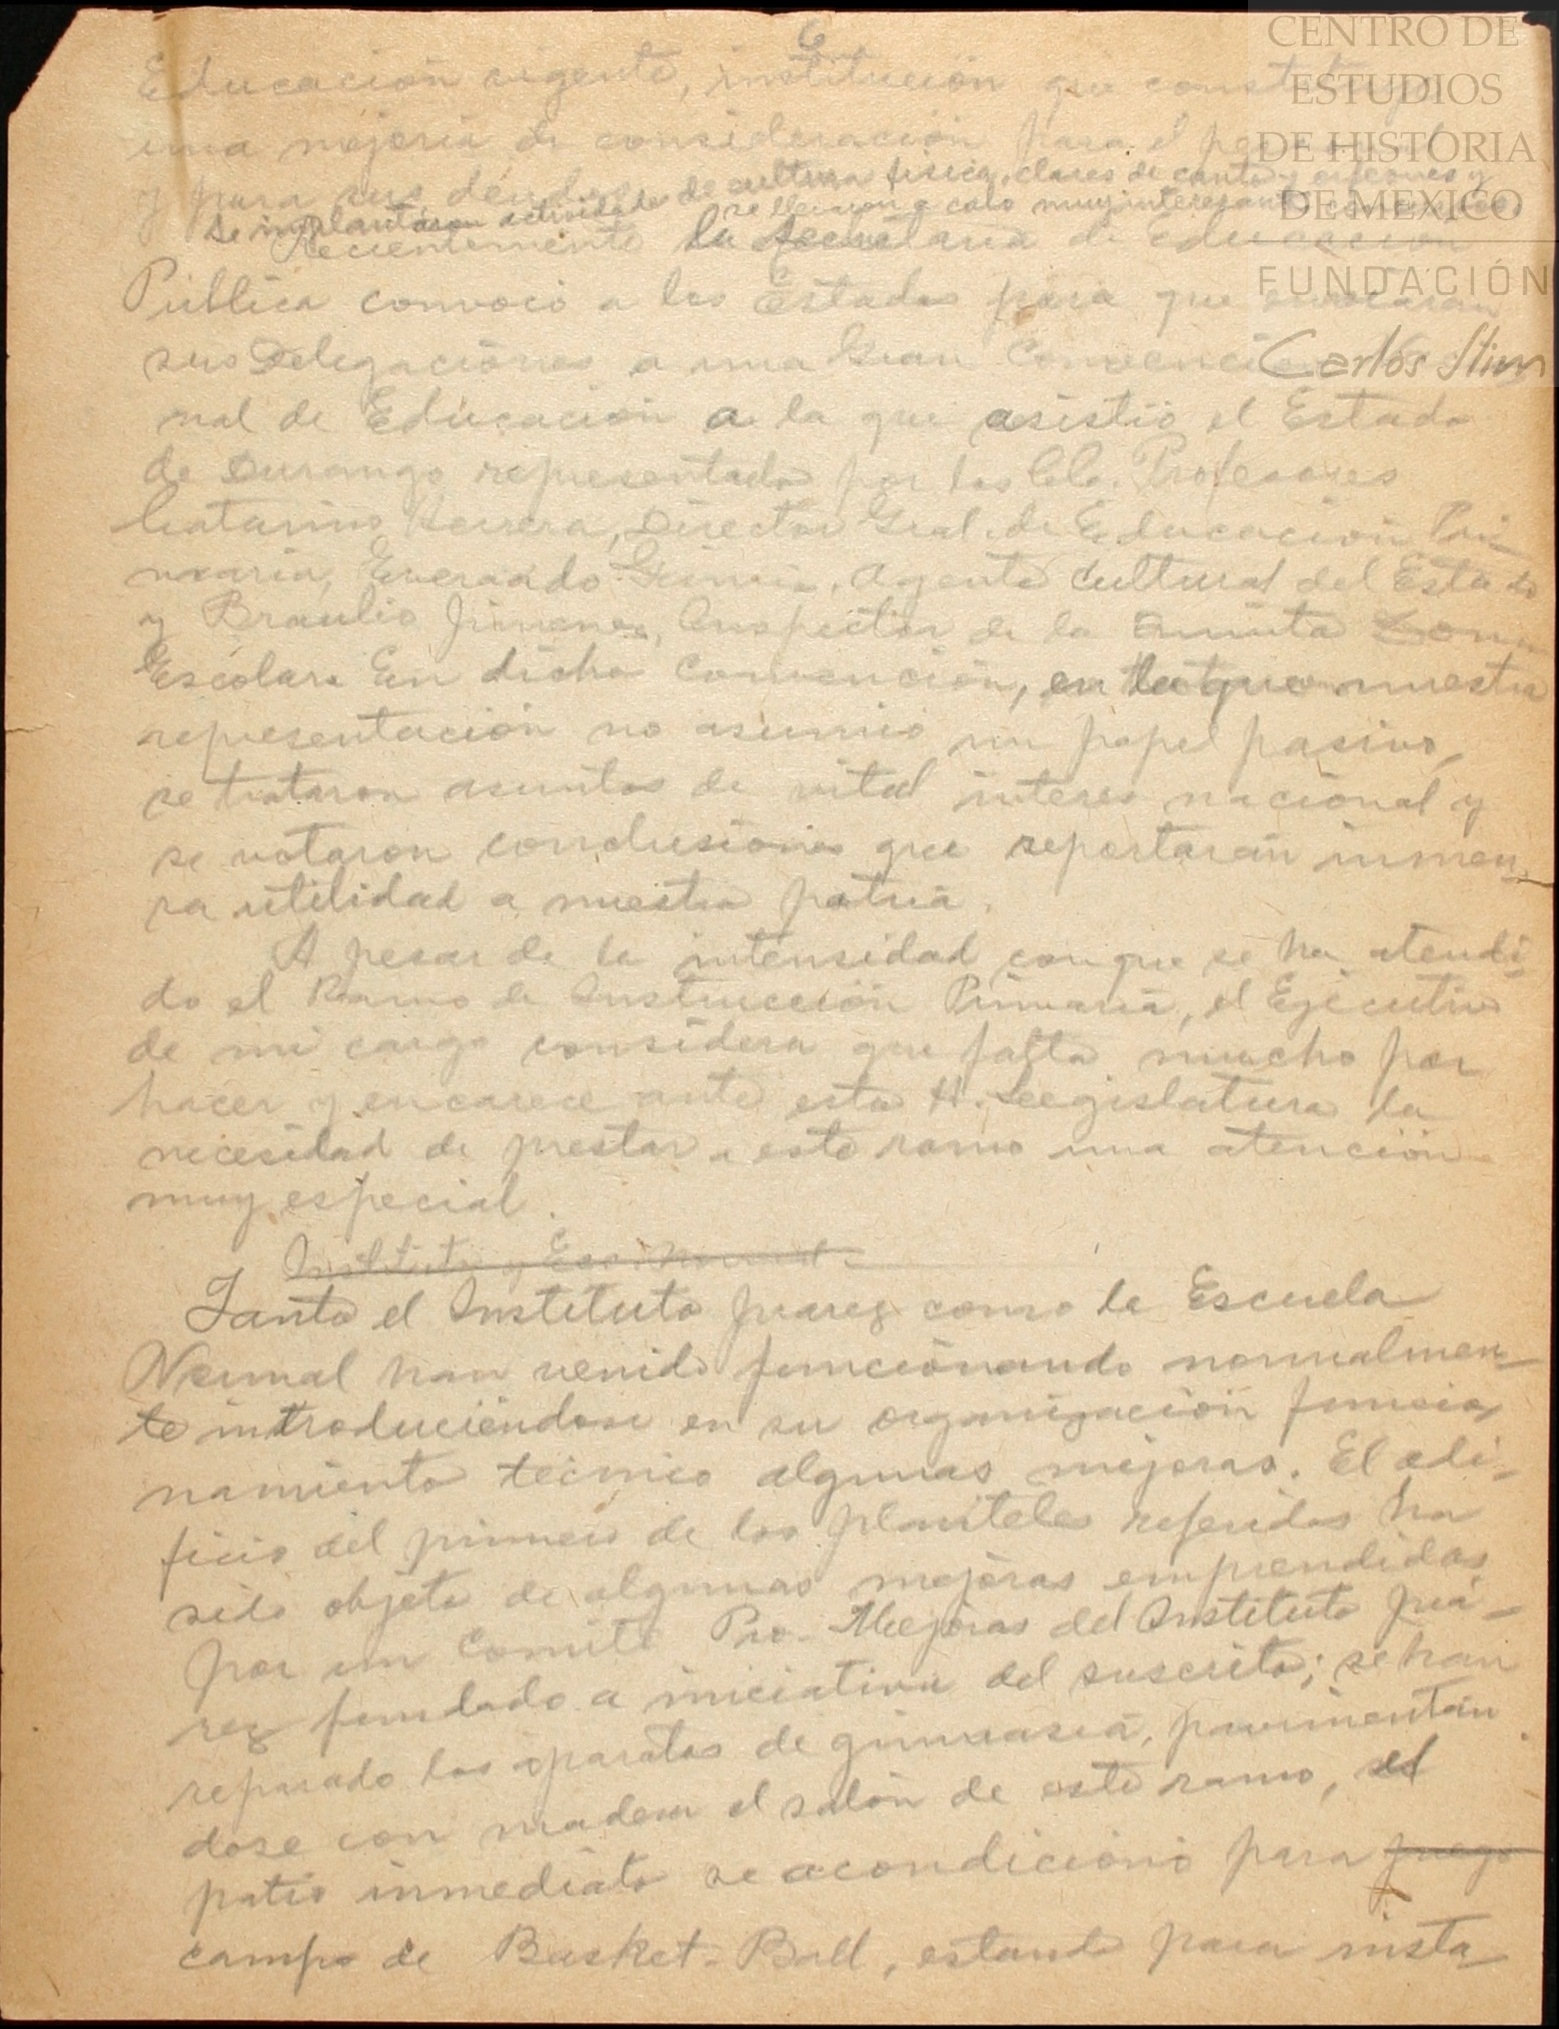 6
Educación vigente, institución que constituye
una mejoría de consideración para el personal
y para sus deudos.
Se implantaron actividades de cultura física, clases de canto y orfeones y
se llevaron a cabo muy interesantes
Recientemente la Secretaría de Educación
Pública convocó a los Estados para que enviaran
sus Delegaciones a una Gran Convención
nal de Educación a la que asistió el Estado
de Durango representado por los CC. Profesores
Catarino Herrera, Director Gral. de Educación Pri-
maria, Everardo Gámiz, Agente Cultural del Estado
y Braulio Jimenez, Inspector de la Quinta Zona
Escolar. En dicha Convención, en la que nuestra
representación no asumió un papel pasivo,
se trataron asuntos de vital interes nacional y
se votaron conclusiones que reportarán inmen-
sa utilidad a nuestra patria.
A pesar de la intensidad con que se ha atendi-
do el Ramo de Instrucción Primaria, el Ejecutivo
de mi cargo considera que falta mucho por
hacer y encarece ante esta H. Legislatura la
necesidad de prestar a este ramo una atención
muy especial.
Instituto y Esc. Normal
Tanto el Instituto Juarez como la Escuela
Normal han venido funcionando normalmen-
te introduciéndose en su organización funcio-
namiento técnico algunas mejoras. El edi-
ficio del primero de los planteles referidos ha
sido objeto de algunas mejoras emprendidas
por un Comité Pro-Mejoras del Instituto Juá-
rez fundado a iniciativa del suscrito; se han
reparado los aparatos de gimnasia, pavimentán
dose con madera el salón de este ramo, el
patio inmediato se acondicionó para juego
campo de Basket-Ball, estando para insta
CENTRO DE
ESTUDIOS
DE HISTORIA
DE MEXICO
FUNDACIÓN
Carlos Slim